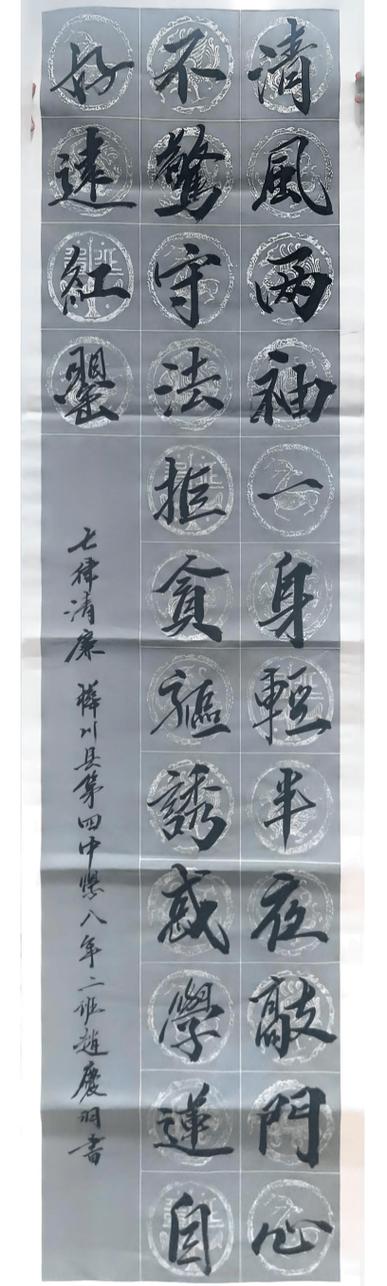 清風两袖一身輕半夜敲門心
不驚守法拒貪驅誘惑學蓮自
好遠紅罌
七律清廉 樺川县第四中學八年二班趙慶羽書